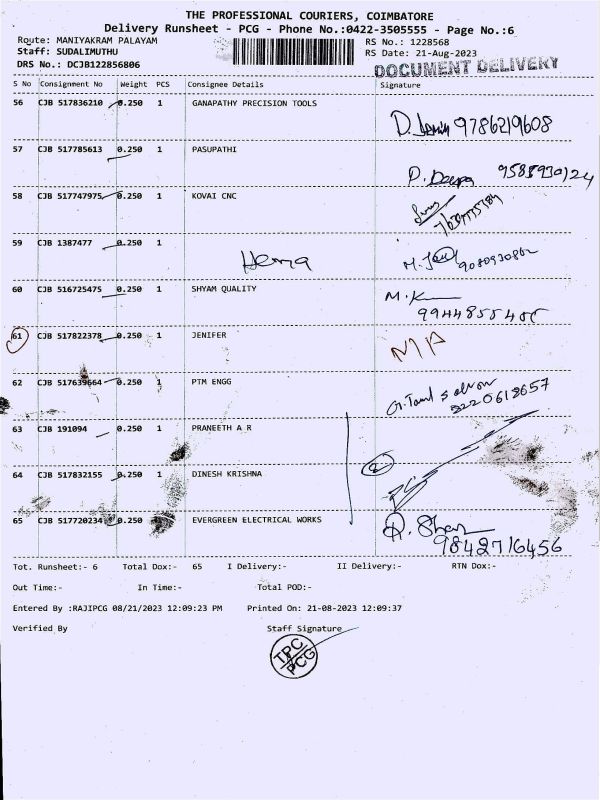 THE PROFESSIONAL COURIERS, COIMBATORE
Delivery Runsheet - PCG - Phone No.:0422-3505555 - Page No.:6
Route: MANIYAKRAM PALAYAM
RS No.: 1228568
Staff: SUDALIMUTHU
RS Date: 21-Aug-2023
DRS No.: DCJB122856806
DOCUMENT DELIVERY
S No Consignment No Weight PCS Consignee Details Signature
56 CJB 517836210 0.250 1 GANAPATHY PRECISION TOOLS
9786219608
57 CJB 517785613 0.250 1 PASUPATHI
9588930124
58 CJB 517747975 0.250 1 KOVAI CNC
59 CJB 1387477 0.250 1
Hema
60 CJB 516725475 0.250 1 SHYAM QUALITY
M. K
9944855405
61 CJB 517822378 0.250 1 JENIFER
N/A
62 CJB 517639664 0.250 1 PTM ENGG
8220618657
63 CJB 191094 0.250 1 PRANEETH A R
2
64 CJB 517832155 0.250 1 DINESH KRISHNA
65 CJB 517720234 0.250 1 EVERGREEN ELECTRICAL WORKS
9842716456
Tot. Runsheet:- 6 Total Dox:- 65 I Delivery:- II Delivery:- RTN Dox:-
Out Time:- In Time:- Total POD:-
Entered By :RAJIPCG 08/21/2023 12:09:23 PM Printed On: 21-08-2023 12:09:37
Verified By Staff Signature
TPC
PCG